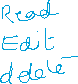 Read
Edit
ddelete